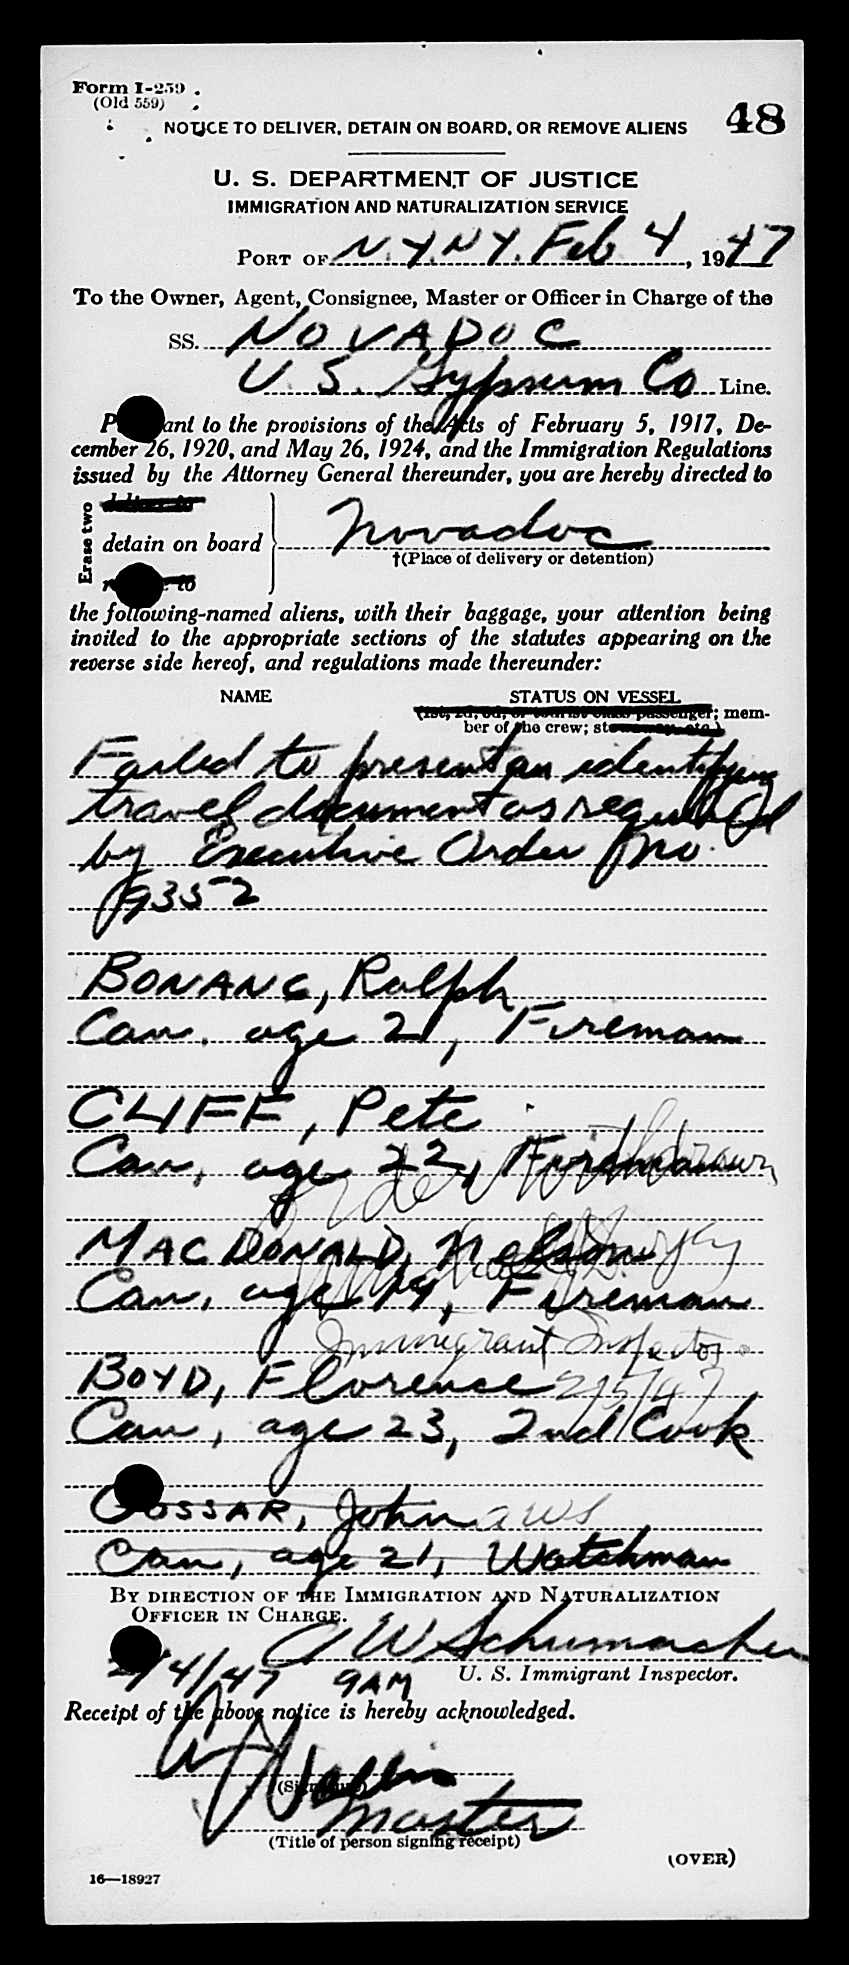 Form I-259
(Old 559)
48
NOTICE TO DELIVER, DETAIN ON BOARD, OR REMOVE ALIENS
U. S. DEPARTMENT OF JUSTICE
IMMIGRATION AND NATURALIZATION SERVICE
PORT OF N.Y.N.Y. Feb 4, 1947
To the Owner, Agent, Consignee, Master or Officer in Charge of the
SS. NOVADOC
U. S. Gypsum Co Line.
P ant to the provisions of the Acts of February 5, 1917, De-
cember 26, 1920, and May 26, 1924, and the Immigration Regulations
issued by the Attorney General thereunder, you are hereby directed to
Erase two
deliver to
detain on board
Novadoc
†(Place of delivery or detention)
to
the following-named aliens, with their baggage, your attention being
invited to the appropriate sections of the statutes appearing on the
reverse side hereof, and regulations made thereunder:
NAME STATUS ON VESSEL
(1st, 2d, 3d, or tourist class passenger; mem-
ber of the crew; stowaway, etc.)
Failed to present an identifying
travel document as required
by Executive Order No.
9352
BONANG, Ralph
Can. age 21, Fireman
CLIFF, Pete
Can, age 22, Fireman
Order Withdrawn
MACDONALD, Nelson
Can, age 19, Fireman
Immigrant Inspector
BOYD, Florence 2/5/47
Can, age 23, 2nd Cook
GOSSAR, John AWS
Can, age 21, Watchman
BY DIRECTION OF THE IMMIGRATION AND NATURALIZATION
OFFICER IN CHARGE.
A W Schumacher
2/4/47 9AM U. S. Immigrant Inspector.
Receipt of the above notice is hereby acknowledged.
(Signature)
Master
(Title of person signing receipt)
(OVER)
16—18927